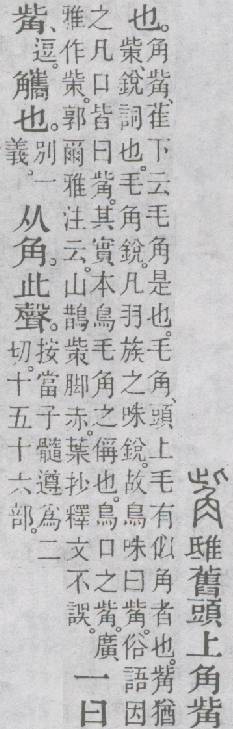 𨾦舊頭上角觜
也。角觜、萑下云毛角是也。毛角、頭上毛有似角者也。觜猶
㭰、銳詞也。毛角銳。凡羽族之咮銳。故鳥咮曰觜。俗語因
之凡口皆曰觜。其實本鳥毛角之偁也。鳥口之觜。廣
雅作㭰。郭爾雅注云。山鵲㭰脚赤。葉抄釋文不誤。一曰
觜、逗。觿也。別一義。从角。此聲。按當子髓遵為二切。十五十六部。